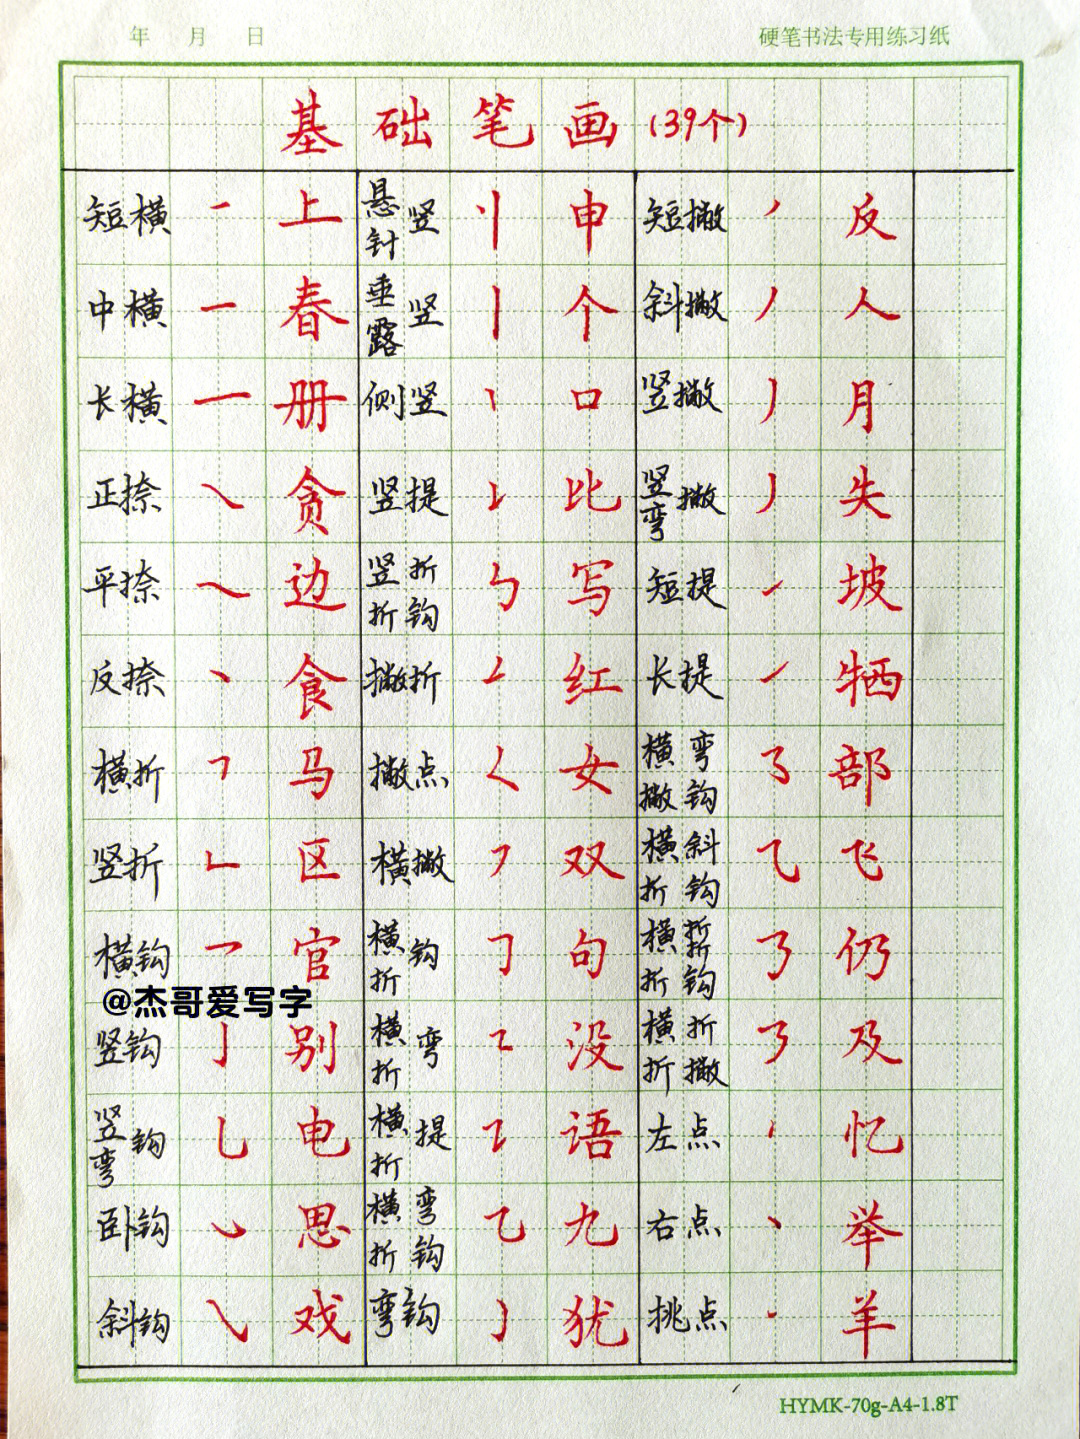 年 月 日 硬笔书法专用练习纸
基础笔画(39个)
短横 ㇐ 上 悬针竖 丨 申 短撇 ㇒ 反
中横 ㇐ 春 垂露竖 丨 个 斜撇 ㇒ 人
长横 ㇐ 册 侧竖 丨 口 竖撇 ㇓ 月
正捺 ㇏ 贪 竖提 ㇙ 比 竖弯撇 ㇓ 失
平捺 ㇏ 边 竖折折钩 ㇉ 写 短提 ㇀ 坡
反捺 ㇔ 食 撇折 ㇜ 红 长提 ㇀ 牺
横折 ㇕ 马 撇点 ㇛ 女 横撇弯钩 ㇌ 部
竖折 ㇗ 区 横撇 ㇇ 双 横折斜钩 ⺄ 飞
横钩 ㇖ 官 横折钩 ㇆ 句 横折折折钩 ㇡ 仍
@杰哥爱写字
竖钩 ㇚ 别 横折弯 ㇍ 没 横折折撇 ㇋ 及
竖弯钩 ㇟ 电 横折提 ㇊ 语 左点 ㇔ 忆
卧钩 ㇃ 思 横折弯钩 ㇈ 九 右点 ㇔ 举
斜钩 ㇂ 戏 弯钩 ㇁ 犹 挑点 ㇀ 羊
HYMK-70g-A4-1.8T